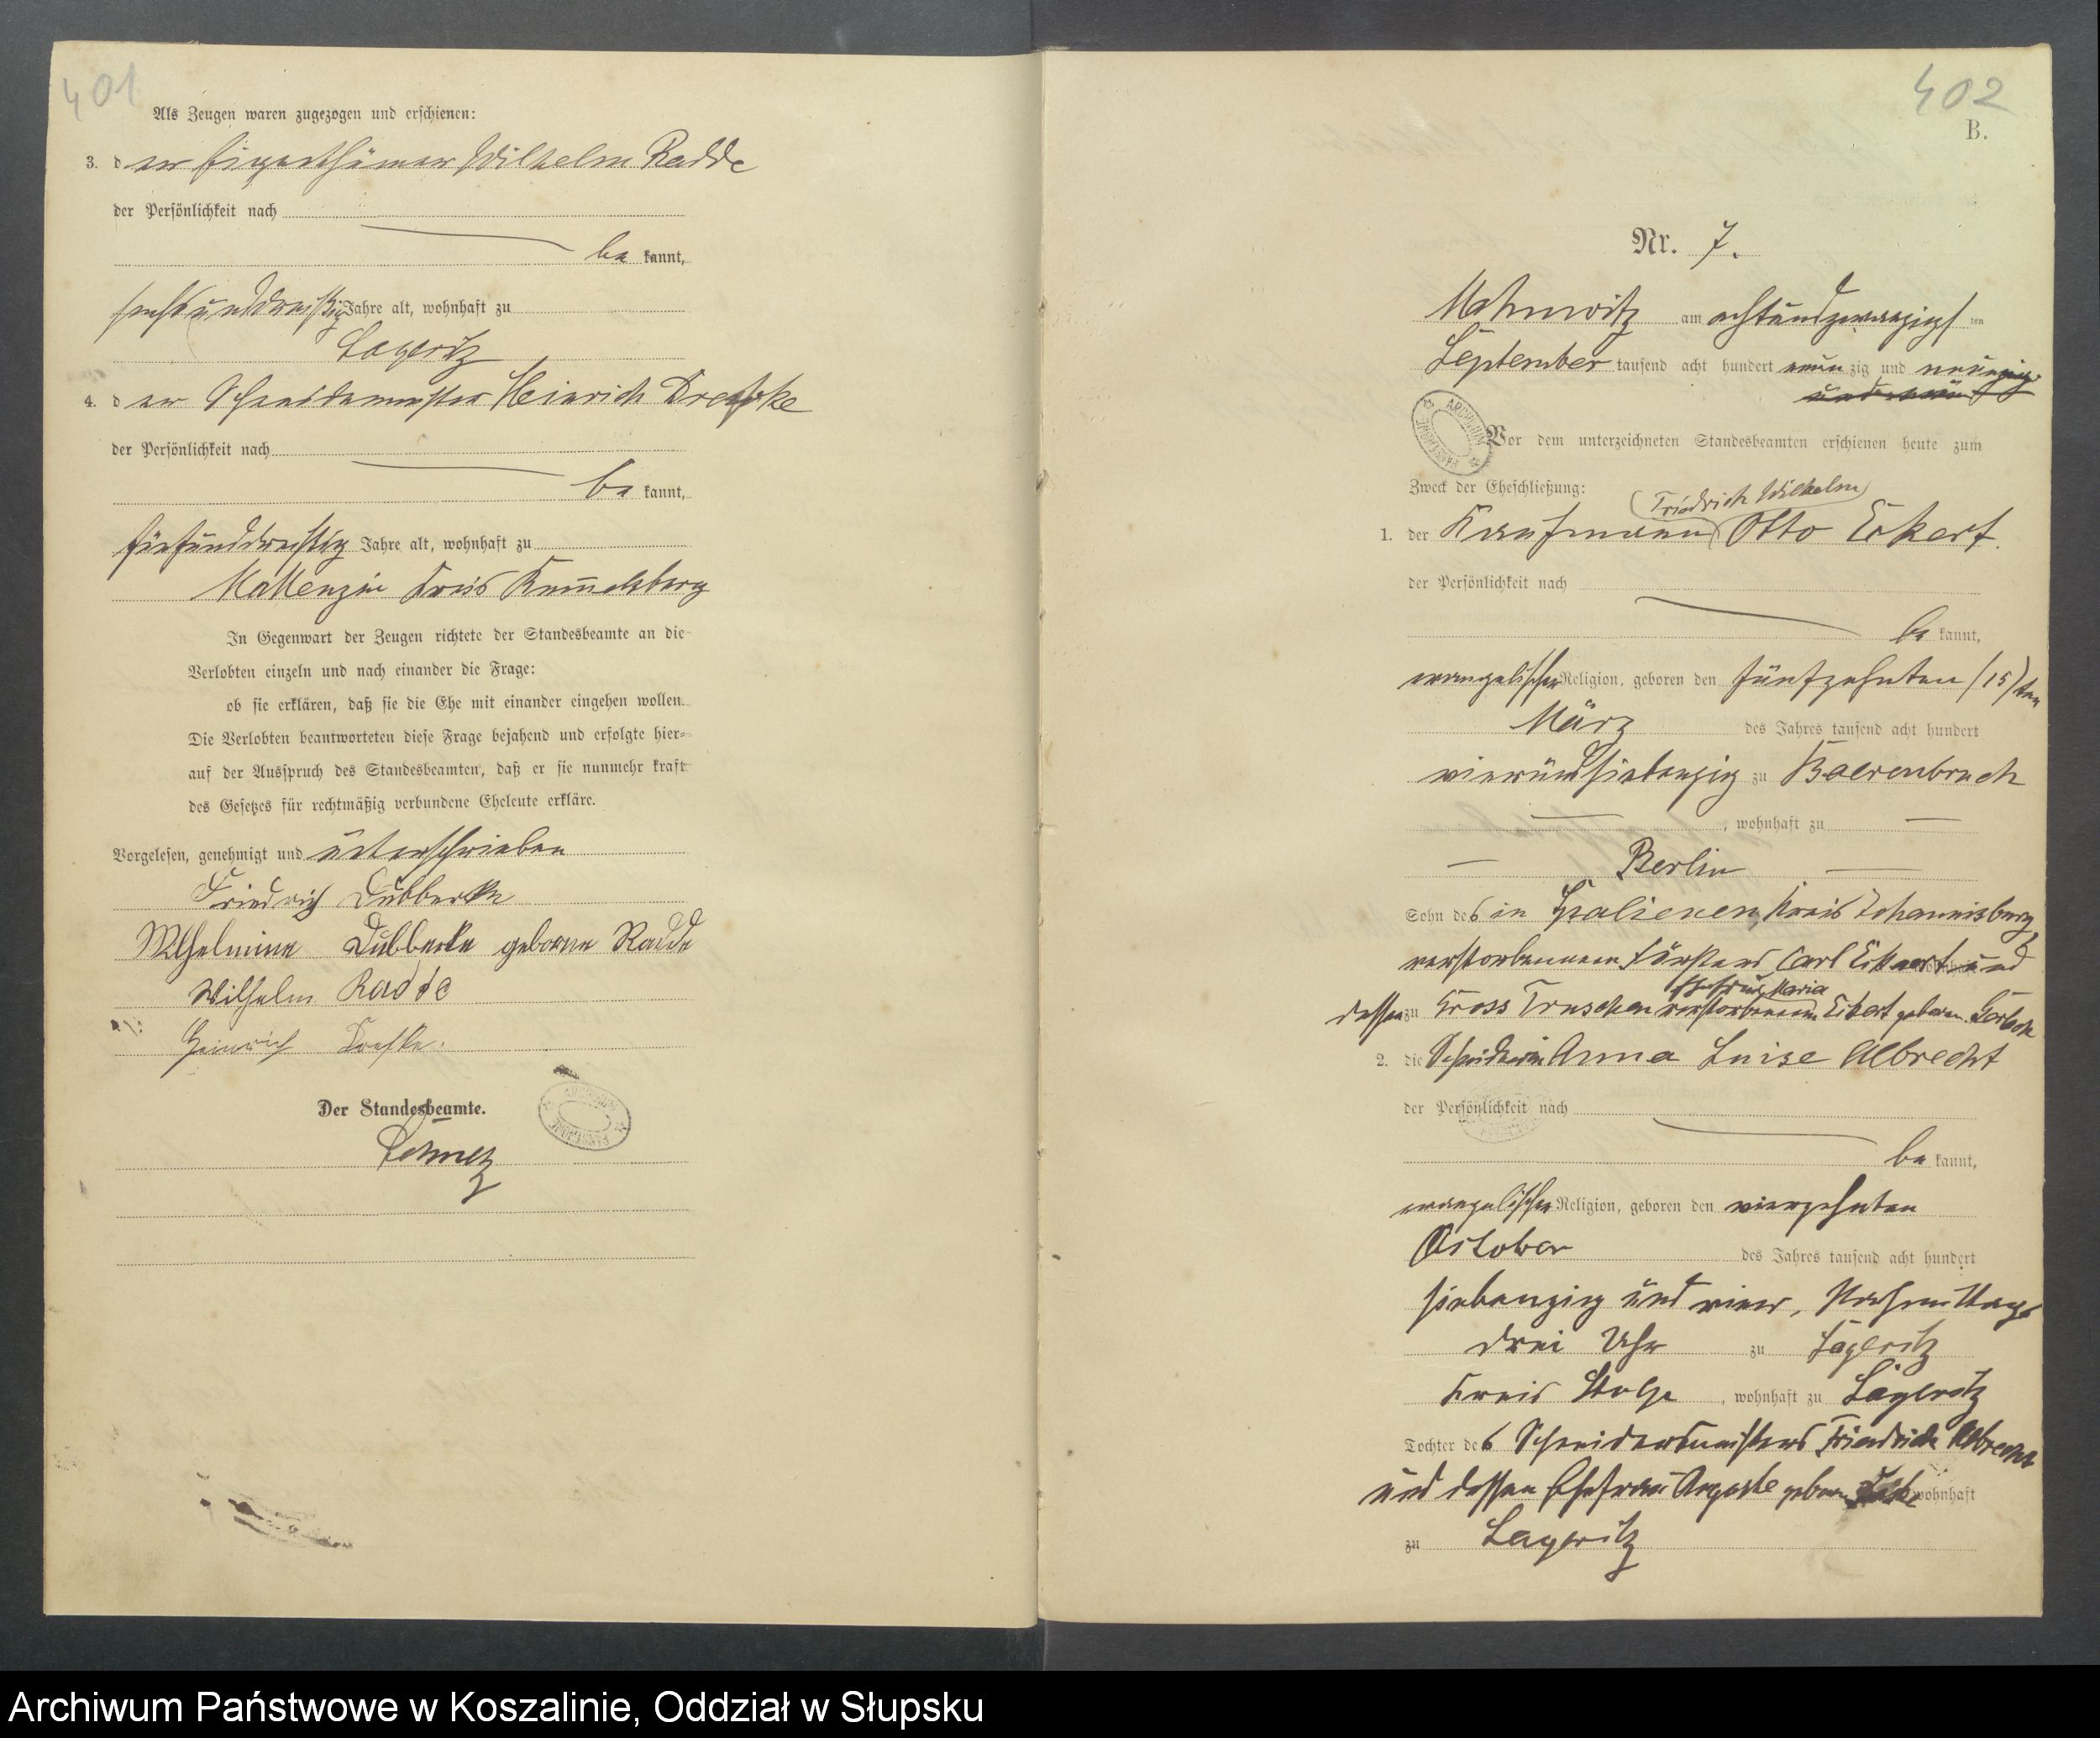 401
Als Zeugen waren zugezogen und erschienen:
3. der Eigenthümer Wilhelm Radde
der Persönlichkeit nach
be kannt,
sechsunddreißig Jahre alt, wohnhaft zu
Lageritz
4. der Schneidermeister Heinrich
der Persönlichkeit nach
be kannt,
fünfunddreißig Jahre alt, wohnhaft zu
Kreis Rummelsburg
In Gegenwart der Zeugen richtete der Standesbeamte an die
Verlobten einzeln und nach einander die Frage:
ob sie erklären, daß sie die Ehe mit einander eingehen wollen.
Die Verlobten beantworteten diese Frage bejahend und erfolgte hier-
auf der Ausspruch des Standesbeamten, daß er sie nunmehr kraft
des Gesetzes für rechtmäßig verbundene Eheleute erkläre.
Vorgelesen, genehmigt und unterschrieben
Friedrich Dubberke
Wilhelmine Dubberke geborne Radde
Wilhelm Radde
Heinrich
Der Standesbeamte.
402
B.
Nr. 7.
Mahnwitz am achtundzwanzigsten
September tausend acht hundert neunzig und
Vor dem unterzeichneten Standesbeamten erschienen heute zum
Zweck der Eheschließung:
Friedrich Wilhelm
1. der Kaufmann Otto Eckert.
der Persönlichkeit nach
be kannt,
evangelischer Religion, geboren den fünfzehnten (15) ten
März des Jahres tausend acht hundert
vierundsiebenzig zu Baerenbruch
, wohnhaft zu
Berlin
Sohn des in Kreis Johannisburg
verstorbenen Försters Carl Eckert und
Ehefrau Maria
dessen zu Gross verstorbenen Eckert geboren
2. die Schneiderin Anna Luise Albrecht
der Persönlichkeit nach
be kannt,
evangelischer Religion, geboren den vierzehnten
October des Jahres tausend acht hundert
siebenzig und vier, Nachmittags
drei Uhr zu Lageritz
Kreis Stolp, wohnhaft zu Lageritz
Tochter des Schneidermeisters Friedrich Albrecht
und dessen Ehefrau Auguste geboren wohnhaft
zu Lageritz
Archiwum Państwowe w Koszalinie, Oddział w Słupsku